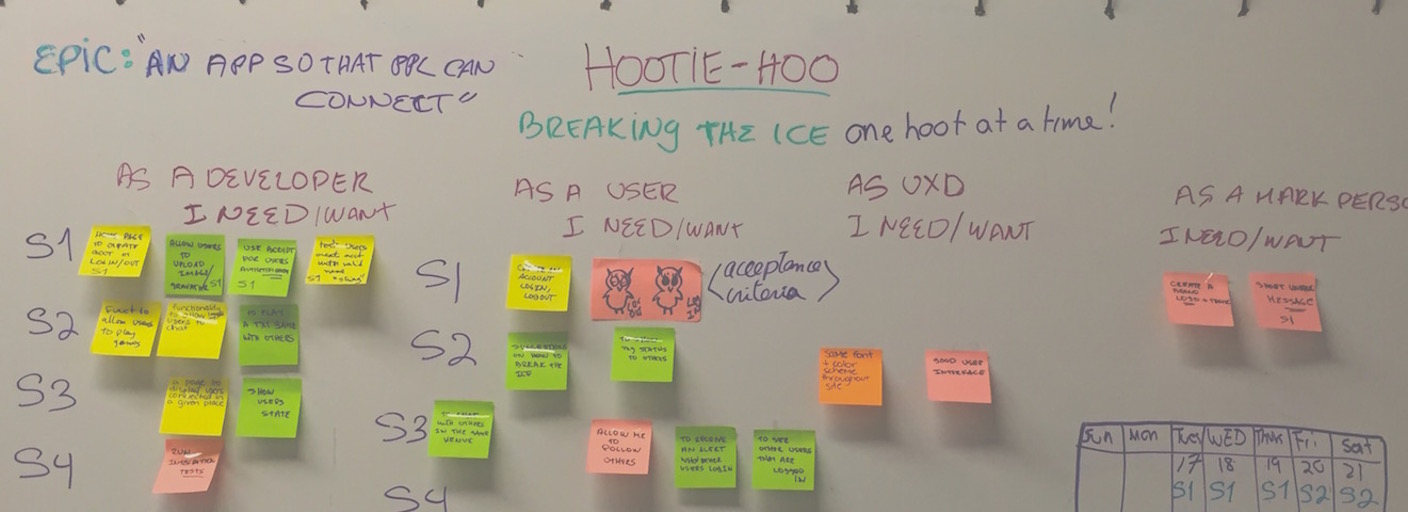 EPIC: "AN APP SO THAT PPL CAN
CONNECT"
HOOTIE-HOO
BREAKING THE ICE one hoot at a time!
AS A DEVELOPER
I NEED/WANT
S1
HOME PAGE
TO CREATE
acct or
LOGIN/OUT
S1
ALLOW USERS
TO
UPLOAD
IMAGE/
S1
USE
FOR USERS
S1
S1
S2
Funct to
allow users
to play
functionality
to allow
users to
chat
A
GAME
WITH OTHERS
S3
a page to
display users
connected in
a given place
SHOW
USERS
STATE
S4
RUN
TESTS
AS A USER
I NEED/WANT
S1
ACCOUNT
LOGIN,
LOGOUT
<acceptance
criteria>
S2
SUGGESTIONS
ON HOW TO
BREAK THE
ICE
MY STATUS
TO OTHERS
S3
WITH OTHERS
IN THE SAME
VENUE
ALLOW ME
TO
FOLLOW
OTHERS
TO RECEIVE
AN ALERT
USERS LOGIN
TO SEE
OTHER USERS
THAT ARE
LOGGED
IN
S4
AS UXD
I NEED/WANT
Same font
+ color
scheme
throughout
site
GOOD USER
INTERFACE
AS A MARK PERSO
I NEED/WANT
CREATE A
BRAND
MESSAGE
S1
Sun Mon Tues WED Thurs Fri Sat
17 18 19 20 21
S1 S1 S1 S2 S2